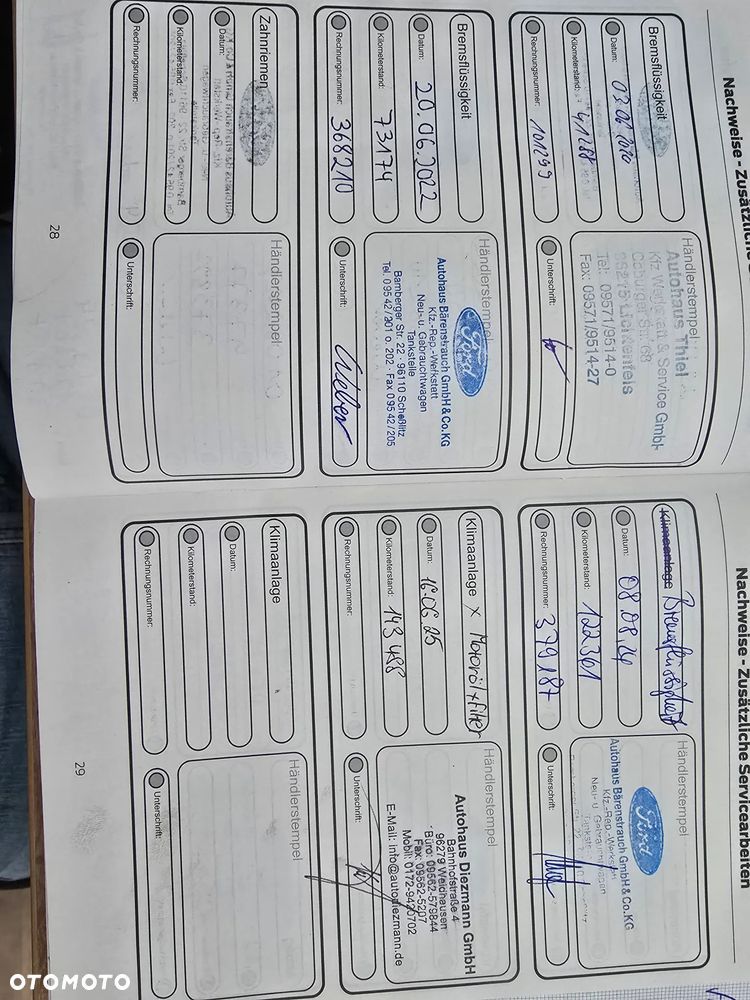 Nachweise - Zusätzliche
Bremsflüssigkeit
Datum:
Kilometerstand: 41288
Rechnungsnummer: 101299
Händlerstempel
Autohaus Thiel
Kfz. Werkstatt & Service GmbH
Coburger Str. 68
Lichtenfels
Tel: 09571/9514-0
Fax: 09571/9514-27
Unterschrift:
Bremsflüssigkeit
Datum: 20.06.2022
Kilometerstand: 73174
Rechnungsnummer: 368210
Händlerstempel
Ford
Autohaus Bärenstrauch GmbH & Co.KG
Kfz.-Rep.-Werkstatt
Neu- u. Gebrauchtwagen
Tankstelle
Bamberger Str. 22 · 96110 Scheßlitz
Tel. 09542/201 o. 202 · Fax 09542/205
Unterschrift:
Zahnriemen
Datum:
Kilometerstand:
Rechnungsnummer:
Händlerstempel
Unterschrift:
28
Nachweise - Zusätzliche Servicearbeiten
Klimaanlage Bremsflüssigkeit
Datum: 08.08.24
Kilometerstand: 122361
Rechnungsnummer: 379187
Händlerstempel
Ford
Autohaus Bärenstrauch GmbH & Co.KG
Kfz.-Rep.-Werkstatt
Neu- u. Gebrauchtwagen
Unterschrift:
Klimaanlage x Motoröl+filter
Datum: 16.06.25
Kilometerstand: 143 488
Rechnungsnummer:
Händlerstempel
Autohaus Diezmann GmbH
Bahnhofstraße 4
96279 Weidhausen
Büro: 09562-579844
Fax: 09562-5207
Mobil: 0172-9420702
E-Mail: info@autodiezmann.de
Unterschrift:
Klimaanlage
Datum:
Kilometerstand:
Rechnungsnummer:
Händlerstempel
Unterschrift:
29
OTOMOTO